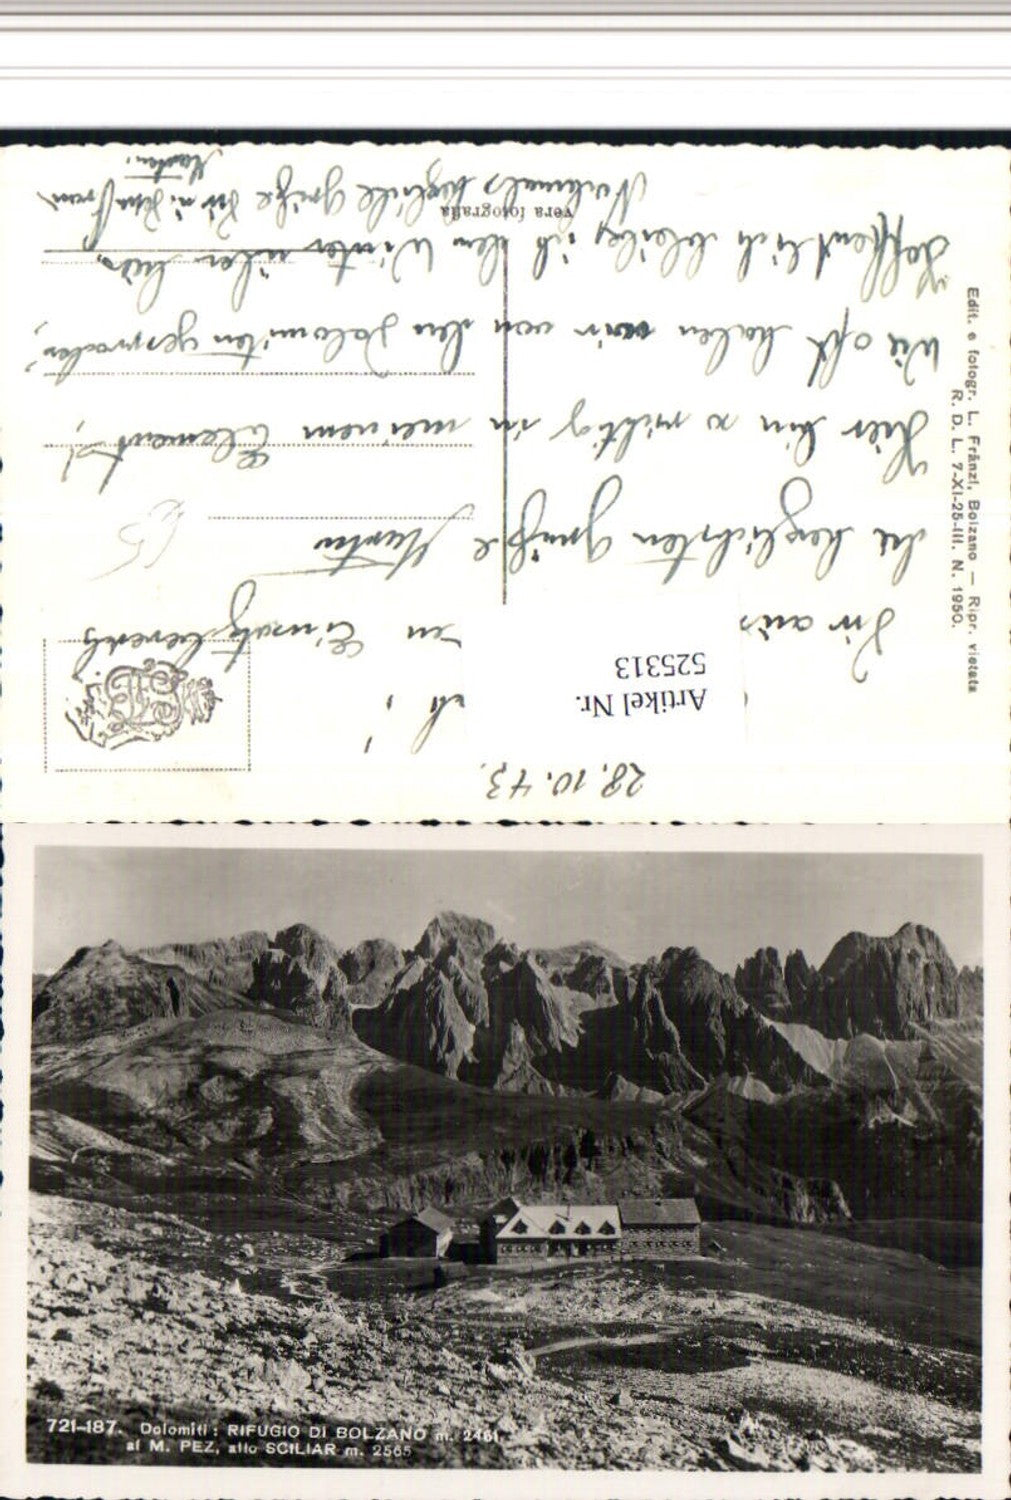 28.10.43.
Artikel Nr.
525313
Dir aus
en Einsatzbereich
die herzlichsten Grüße Martin
Hier bin so richtig in meinem Element,
wie oft haben wir von den Dolomiten gesprochen,
hoffentlich bleibe ich den Winter über hier.
Nochmals herzliche Grüße Dir
vera fotografia
Edit. e fotogr. L. Fränzl, Bolzano — Ripr. vietata
R. D. L. 7-XI-25-III. N. 1950.
721-187. Dolomiti: RIFUGIO DI BOLZANO m. 2461,
al M. PEZ, allo SCILIAR m. 2565